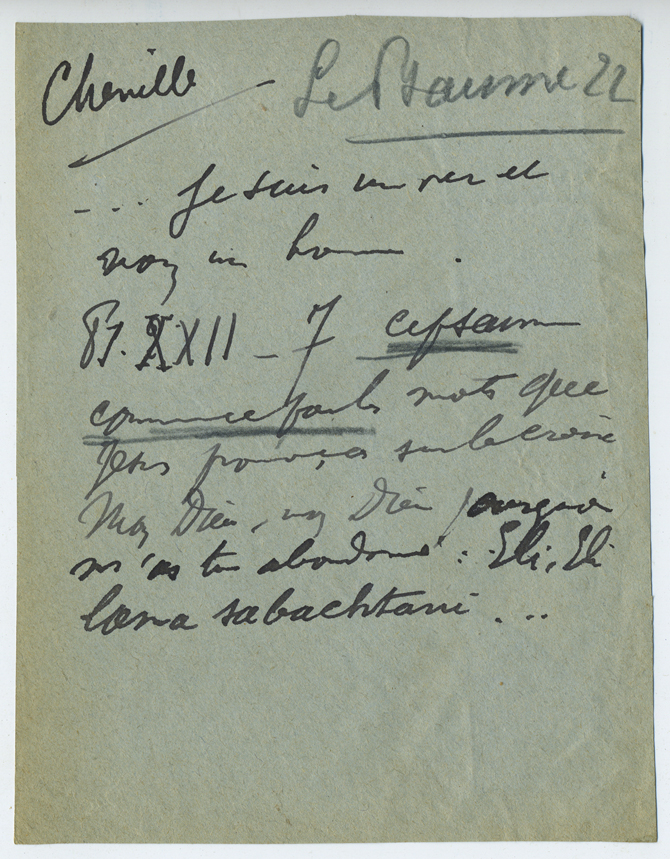 Chenille — Le Psaume 22
- . . . Je suis un ver et
non un homme .
Ps. XXII - 7 ce psaume
commence par les mots que
Jésus prononça sur la croix
Mon Dieu, mon Dieu pourquoi
m'as tu abandonné : Eli, Eli
lama sabachtani . . .